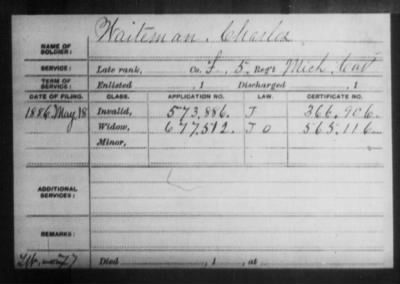 Waiteman, Charles
NAME OF SOLDIER:
SERVICE: Late rank, Co. F, 5 Reg't Mich. Cav
TERM OF SERVICE: Enlisted , 1 Discharged , 1
DATE OF FILING. CLASS. APPLICATION NO. LAW. CERTIFICATE NO.
1886 May 18 Invalid, 573.886. J 366.906
Widow, 677.512. J O 565.116
Minor,
ADDITIONAL SERVICES:
REMARKS:
Died , 1 , at